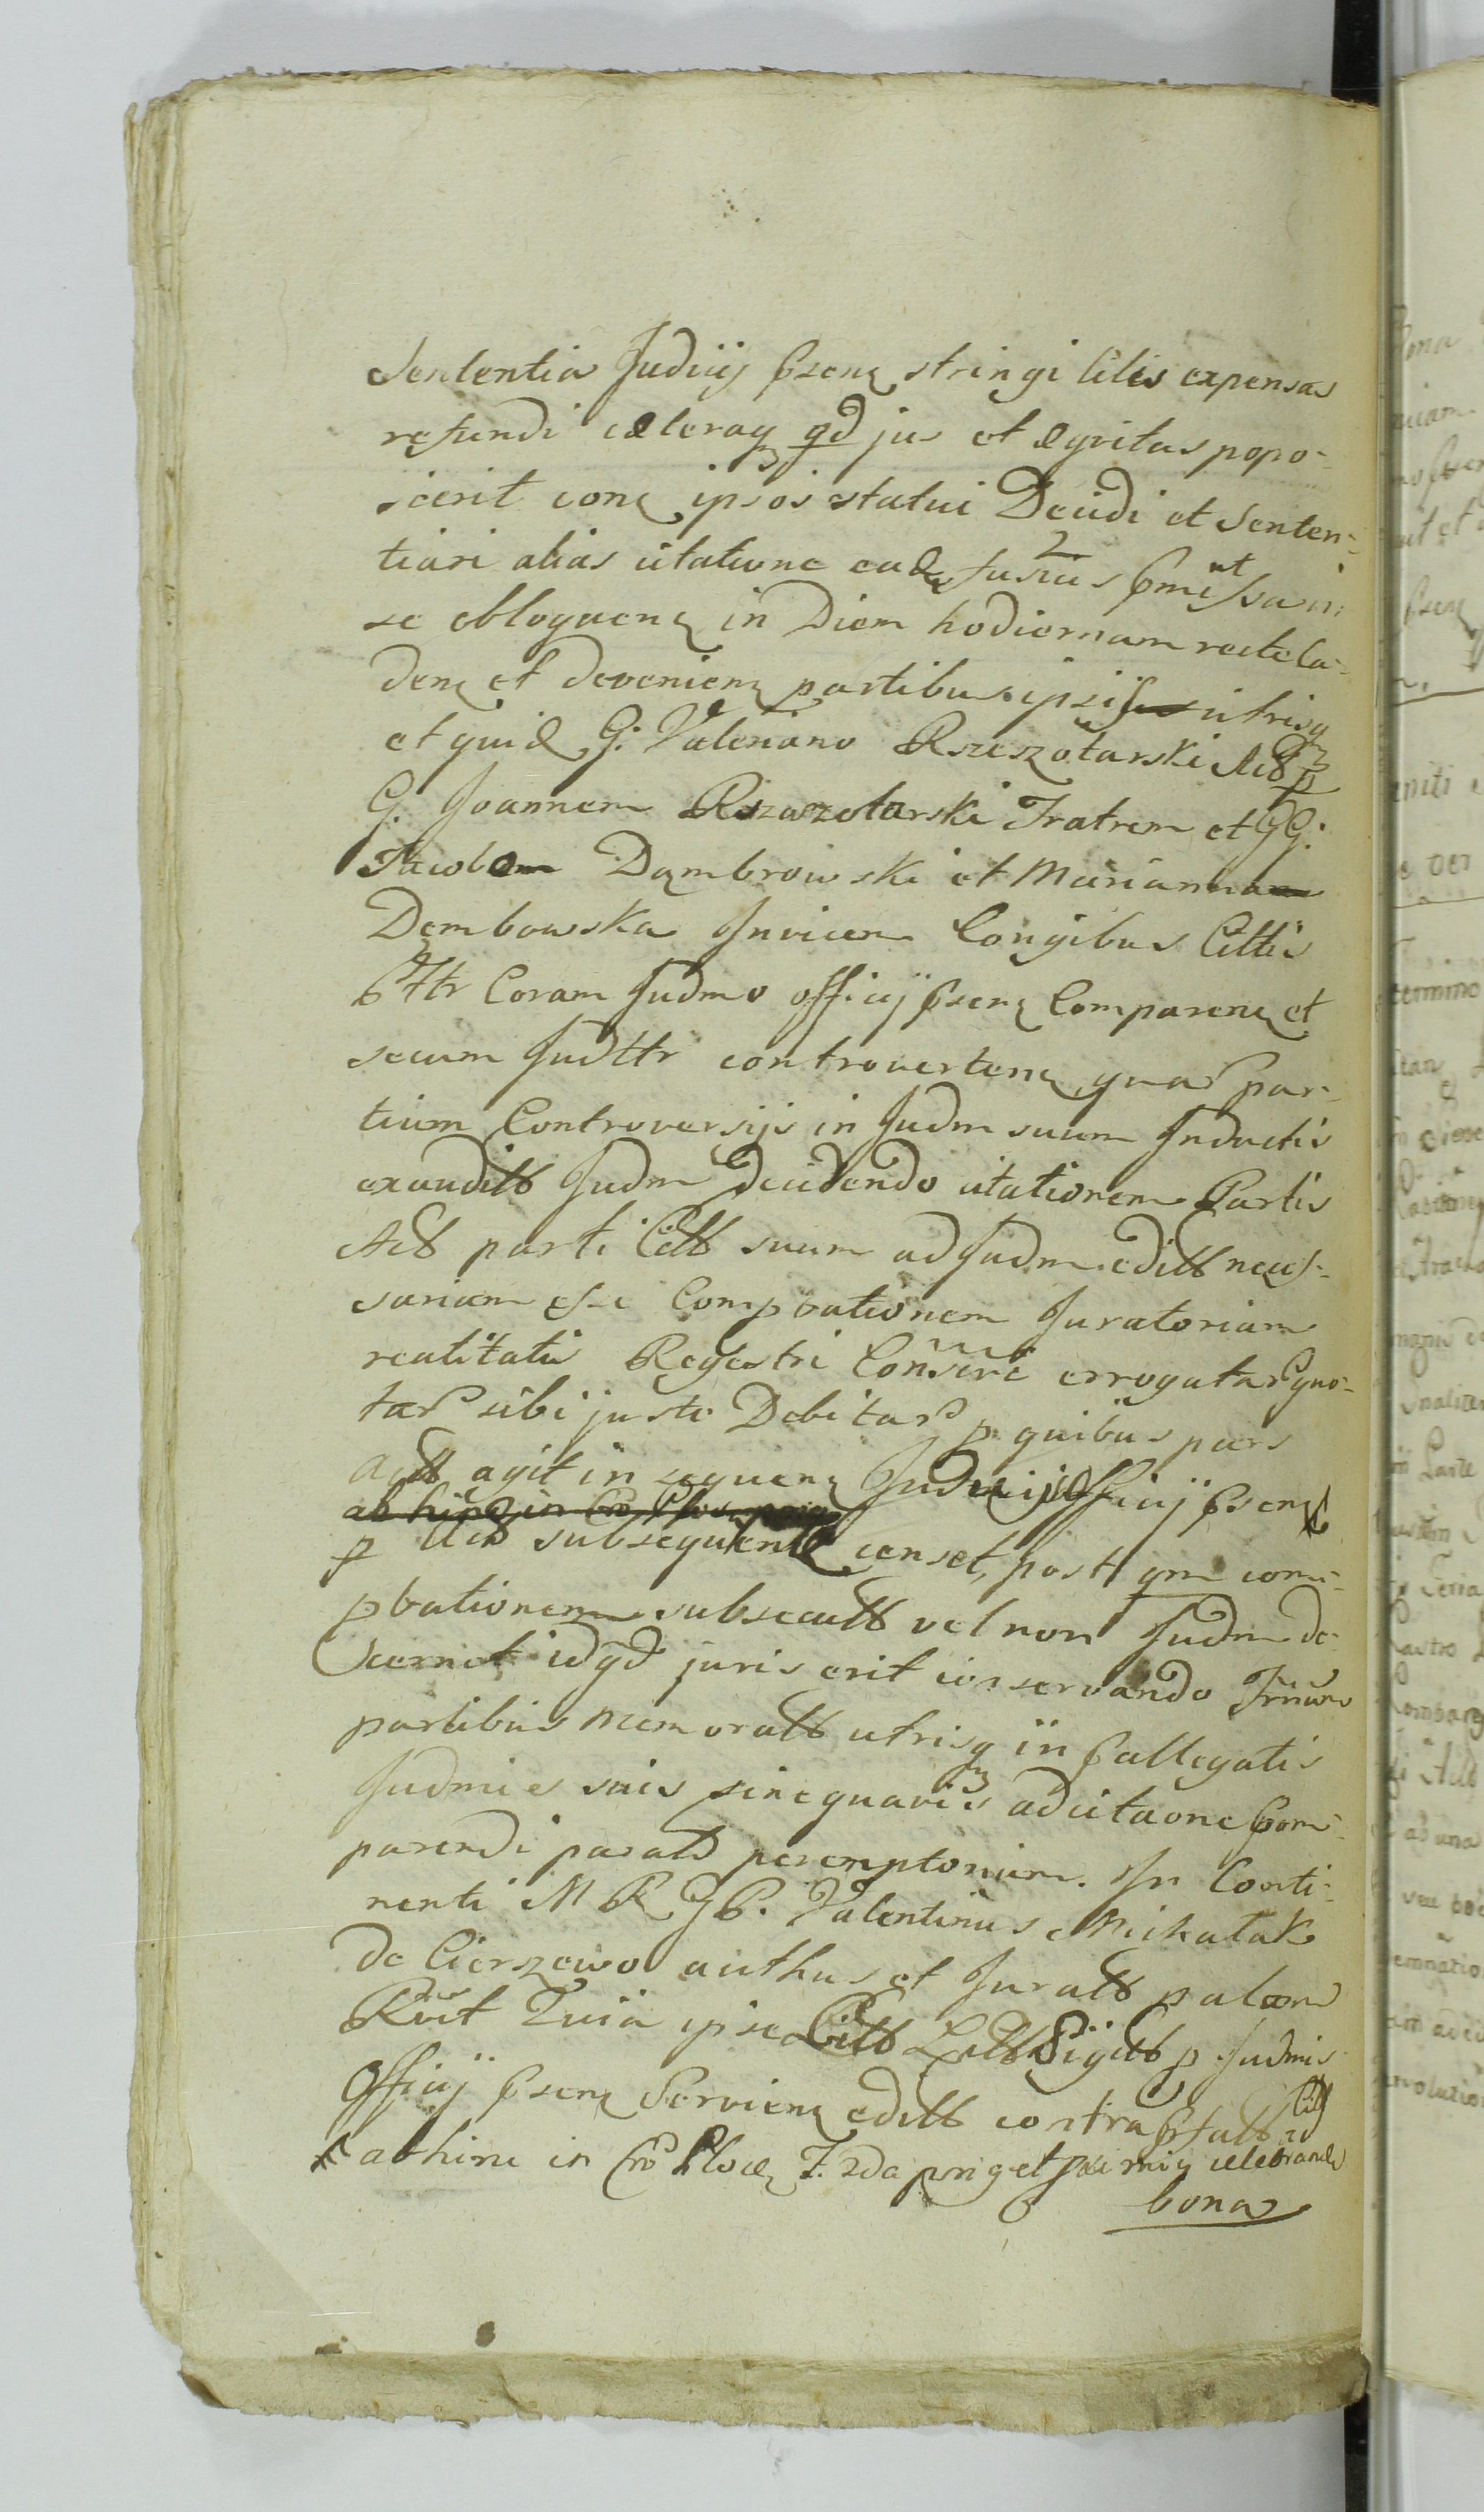 Sententia Judicij pserq stringi litis expensas
refundi cæteraq qd jus et æqvitas popo-
scerit conq ipsos statui Decidi et Senten-
tiari alias citatione eadq fusius pmissa in
se obloquenq in Diem hodiernam recte ca-
denq et Devenienq partibus ipsis utrisq
et quidq G. Valeriano Rzeszotarski Actt p
G. Joannem Rzeszotarski Fratrem et GG.
Jacobo Dąmbrowski et Marianna
Dembowska Invicem Conjgibus Cittis
pttr Coram Judmo officij psenq Comparenq et
secum Judttr controvertenq quar par-
tium Controversijs in Judm suum Inductis
exauditt Judm Decidendo citationem Partis
Actt parti Citt suum ad Judm editt neces-
sariam esse Comprobationem Juratoriam
realitatis Regestri Consvri errogatar quo-
tar sibi juste Debitar p quibus pars
Actt agit in sequenq Judicijs Officij psenq
ab hinc in
p Actt subsequenq censet, post qm com-
pbationem subsecutt vel non Judm de-
cernet id qd juris erit conservando Trnum
partibus memoratt utrisq in pallegatis
Judmis suis sine quavis adcitaone Com-
parendi paratt peremptorium. In Conti-
nenti M R GP. Valentinus Michalak
de Cierszewo authus et Juratt palam
Rvit Quia ipse Citt Littt Sigitt p Judmis
Officij psenq Servienq editt contra pfatt Citt ad
abhinc in Cro Plocq F. 2da prig et pximij celebrand
bona